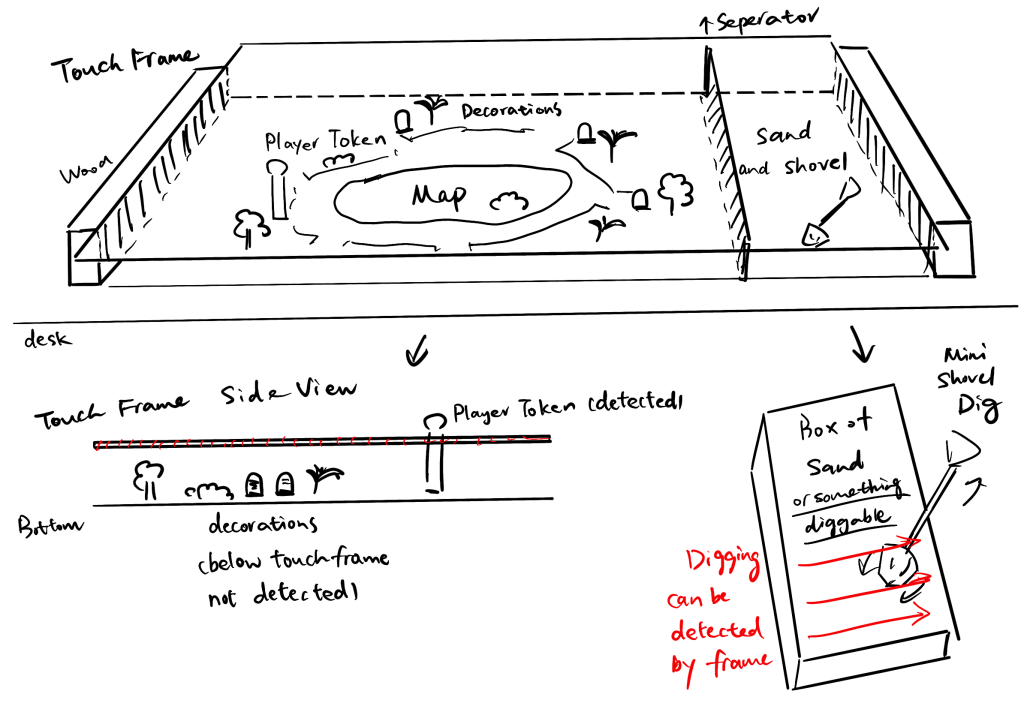 ↑Seperator
Touch Frame
Decorations
Player Token
Wood
Map
Sand
and shovel
desk
Touch Frame Side View
Player Token (detected)
Bottom
decorations
(below touchframe
not detected)
Mini
Shovel
Dig
Box of
Sand
or something
diggable
Digging
can be
detected
by frame